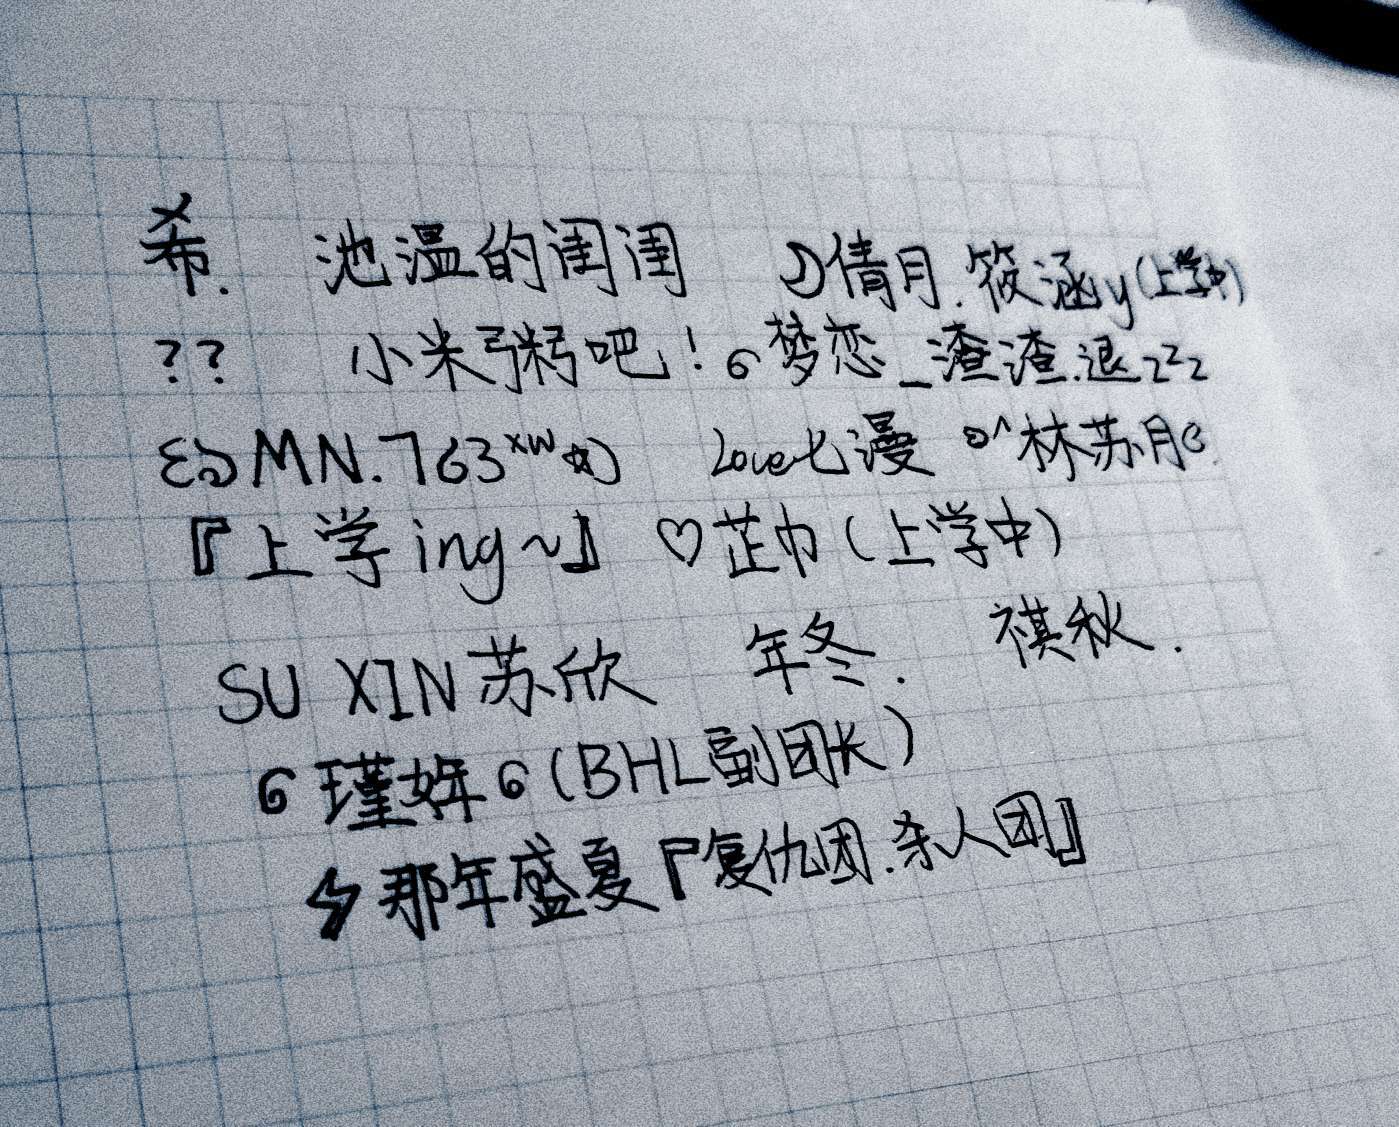 希. 池温的闺闺 倩月.筱涵y(上学中)
?? 小米粥吧! 6梦恋_渣渣.退zzz
MN.763xw☆ Love七漫 林苏月
『上学ing~』 ♡芷巾(上学中)
SU XIN苏欣 年冬. 祺秋.
6瑾姩6(BHL副团长)
ϟ那年盛夏『复仇团.杀人团』